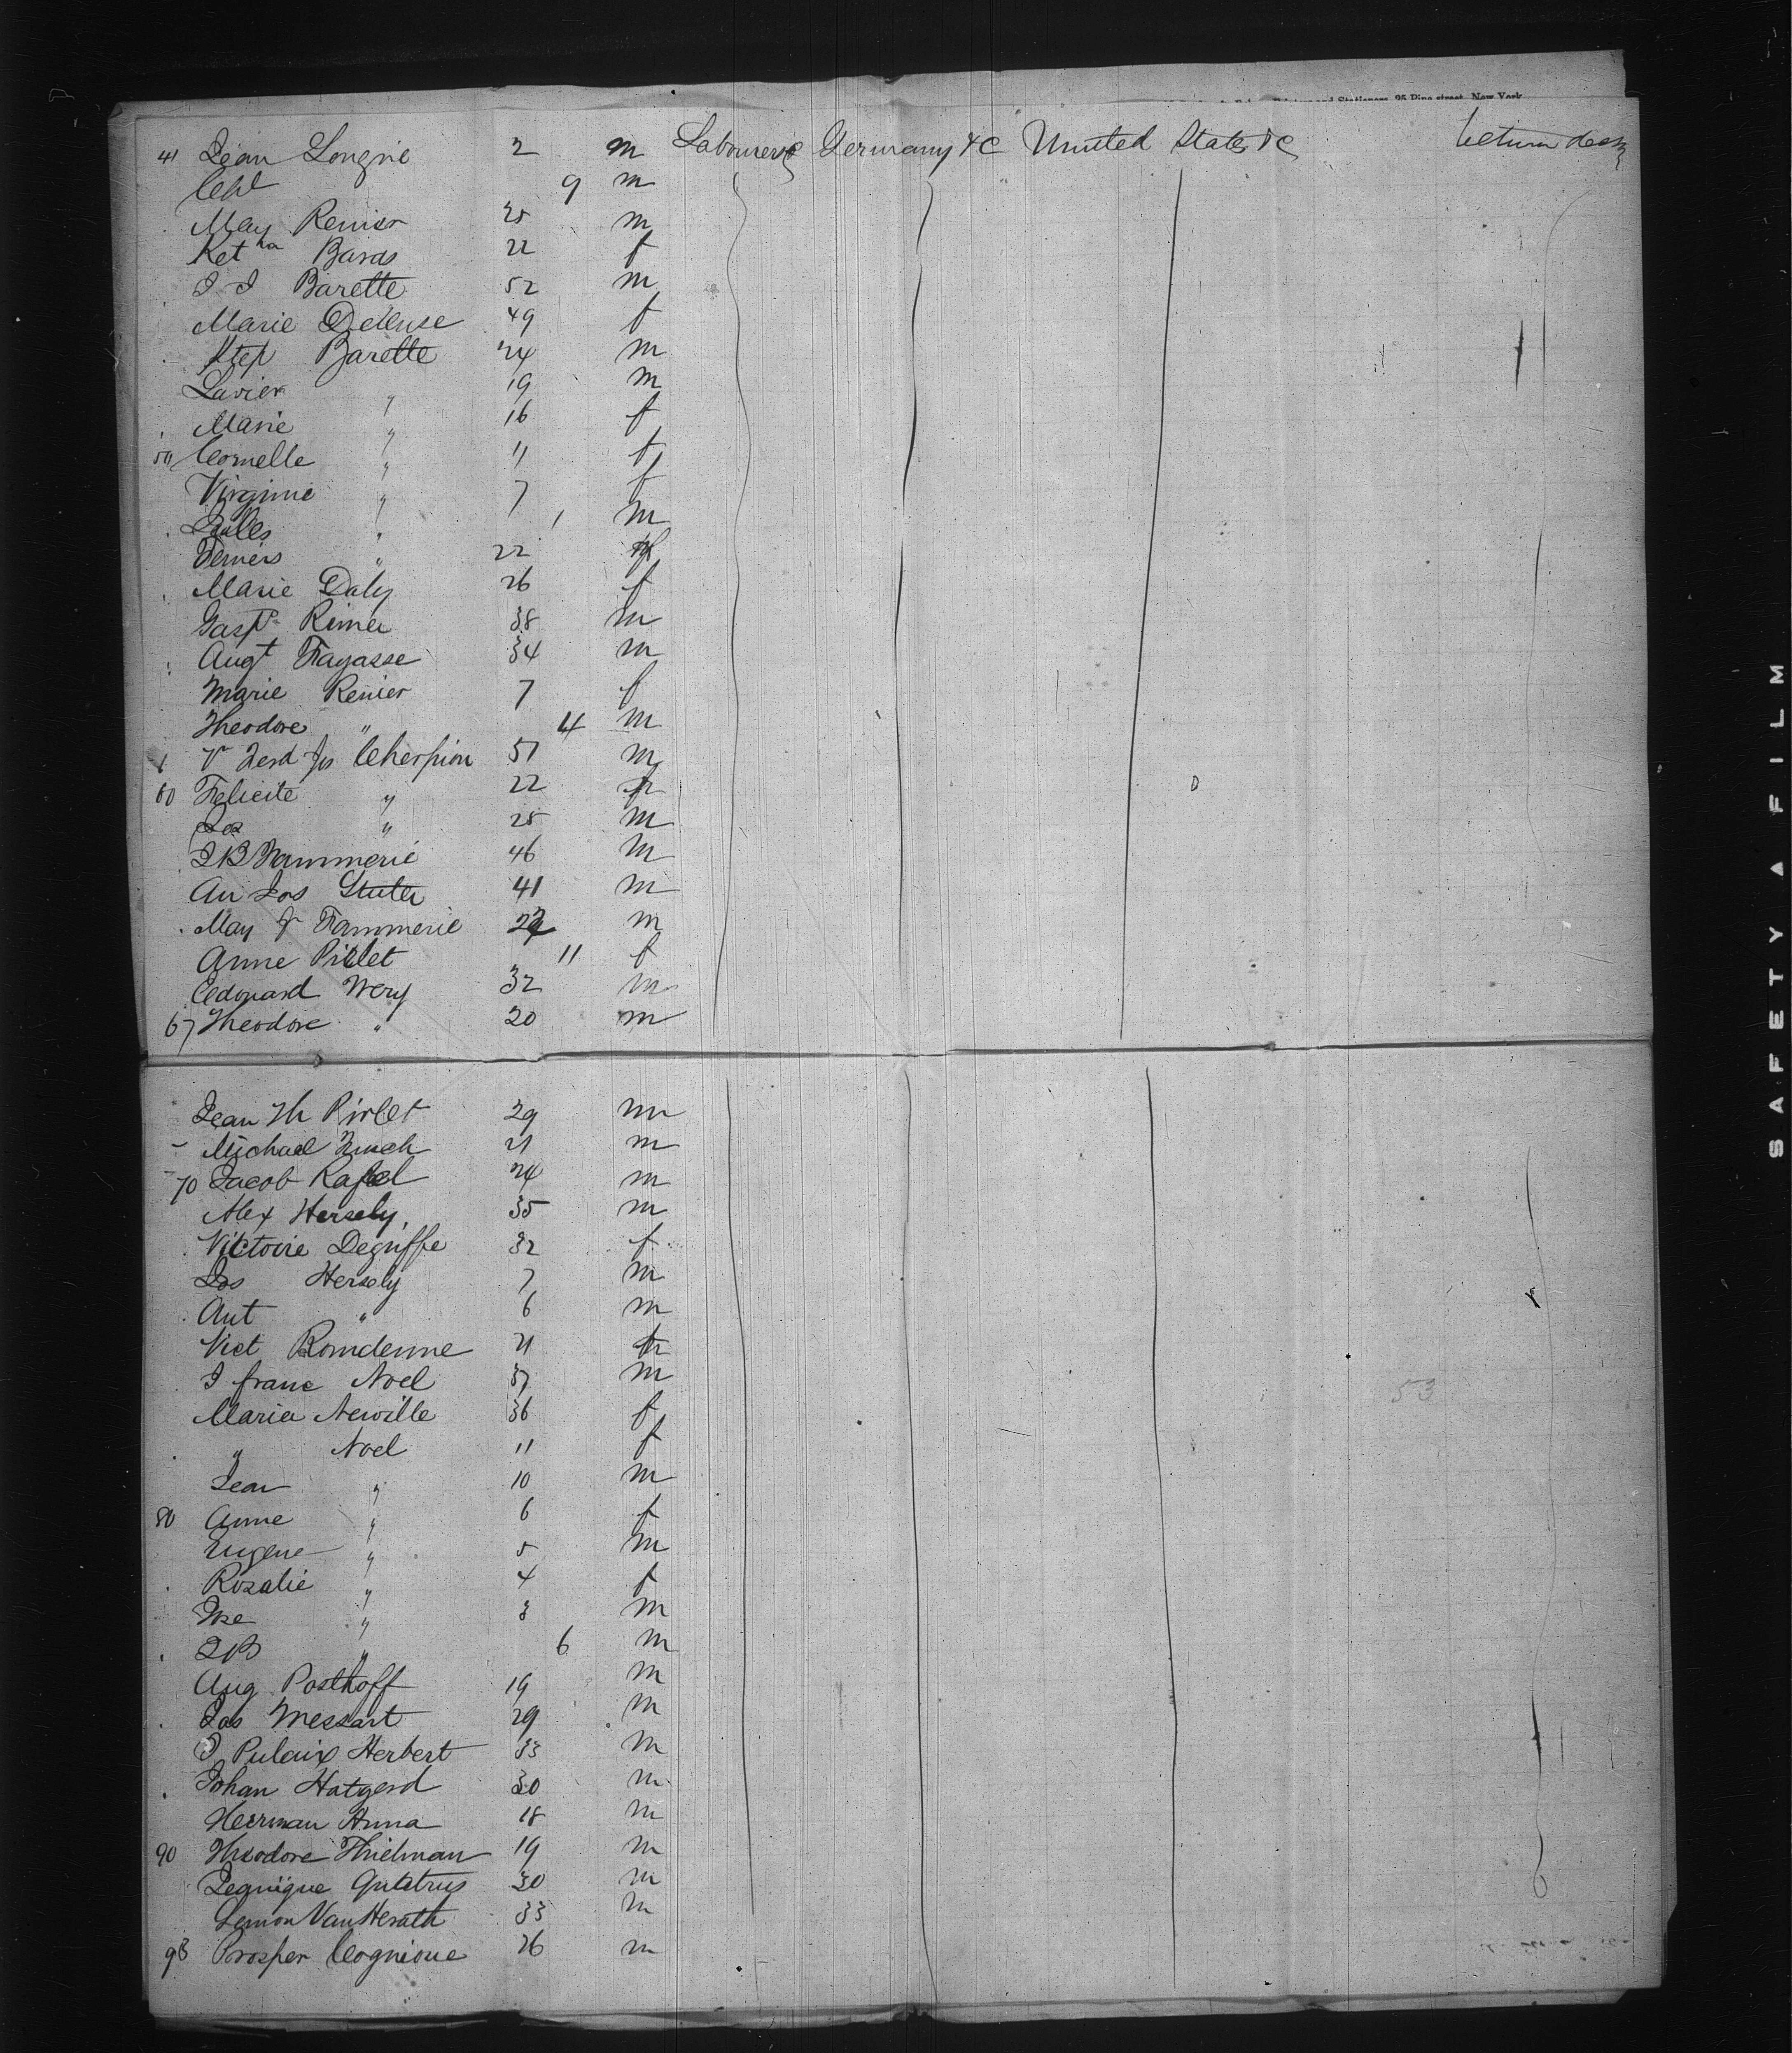 Printers and Stationers, 25 Pine street, New York
41 Jean Longrie 2 m Labourers &c Germany &c United States &c between decks
Chl 9 m
May Renier 25 m
Keth Baras 22 f
J J Barette 52 m
Marie Delense 49 f
Step Barette 24 m
Lavier " 19 m
Marie " 16 f
50 Cornelle " 11 f
Virginie " 7 f
Jules " 1 m
Deniers " 22
Marie Daly 26 f
Gasp Rimer 38 m
Augt Fagasse 34 m
Marie Renier 7 f
Theodore " 4 m
Jos Cherpion 51 m
60 Felicite " 22 f
Jos " 25 m
J B Fammerie 46 m
An Jos Stuler 41 m
May J Fammerie m
Anne Pirlet 11 f
Edouard Wery 32 m
67 Theodore " 20 m
Jean Th Pirlet 29 m
Michael 21 m
70 Jacob Rafel 24 m
Alex Hersely 35 m
Victoire Degriffe 32 f
Jos Hersely 7 m
Ant " 6 m
Vict Romdenne 21
J franc Noel 37 m
Maria Neville 36 f
" Noel 11 f
Jean " 10 m
80 Anne " 6 f
Eugene " 5 m
Rosalie " 4 f
" 3 m
J B " 6 m
Aug Posthoff 19 m
Jos Messart 29 m
J Pulaix Herbert 33 m
Johan Hatgerd 30 m
Herman Anna 18 m
90 Theodore Thielman 19 m
30 m
Lemon Van Herath 33 m
93 Prosper Cognioue 26 m
53
SAFETY FILM